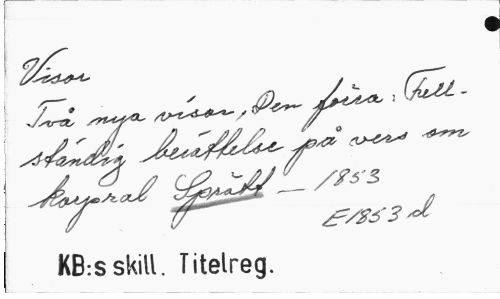 Visor
Två nya visor, Den förra: Full-
ständig berättelse på vers om
korpral Sprätt – 1853
E1853 d
KB:s skill. Titelreg.